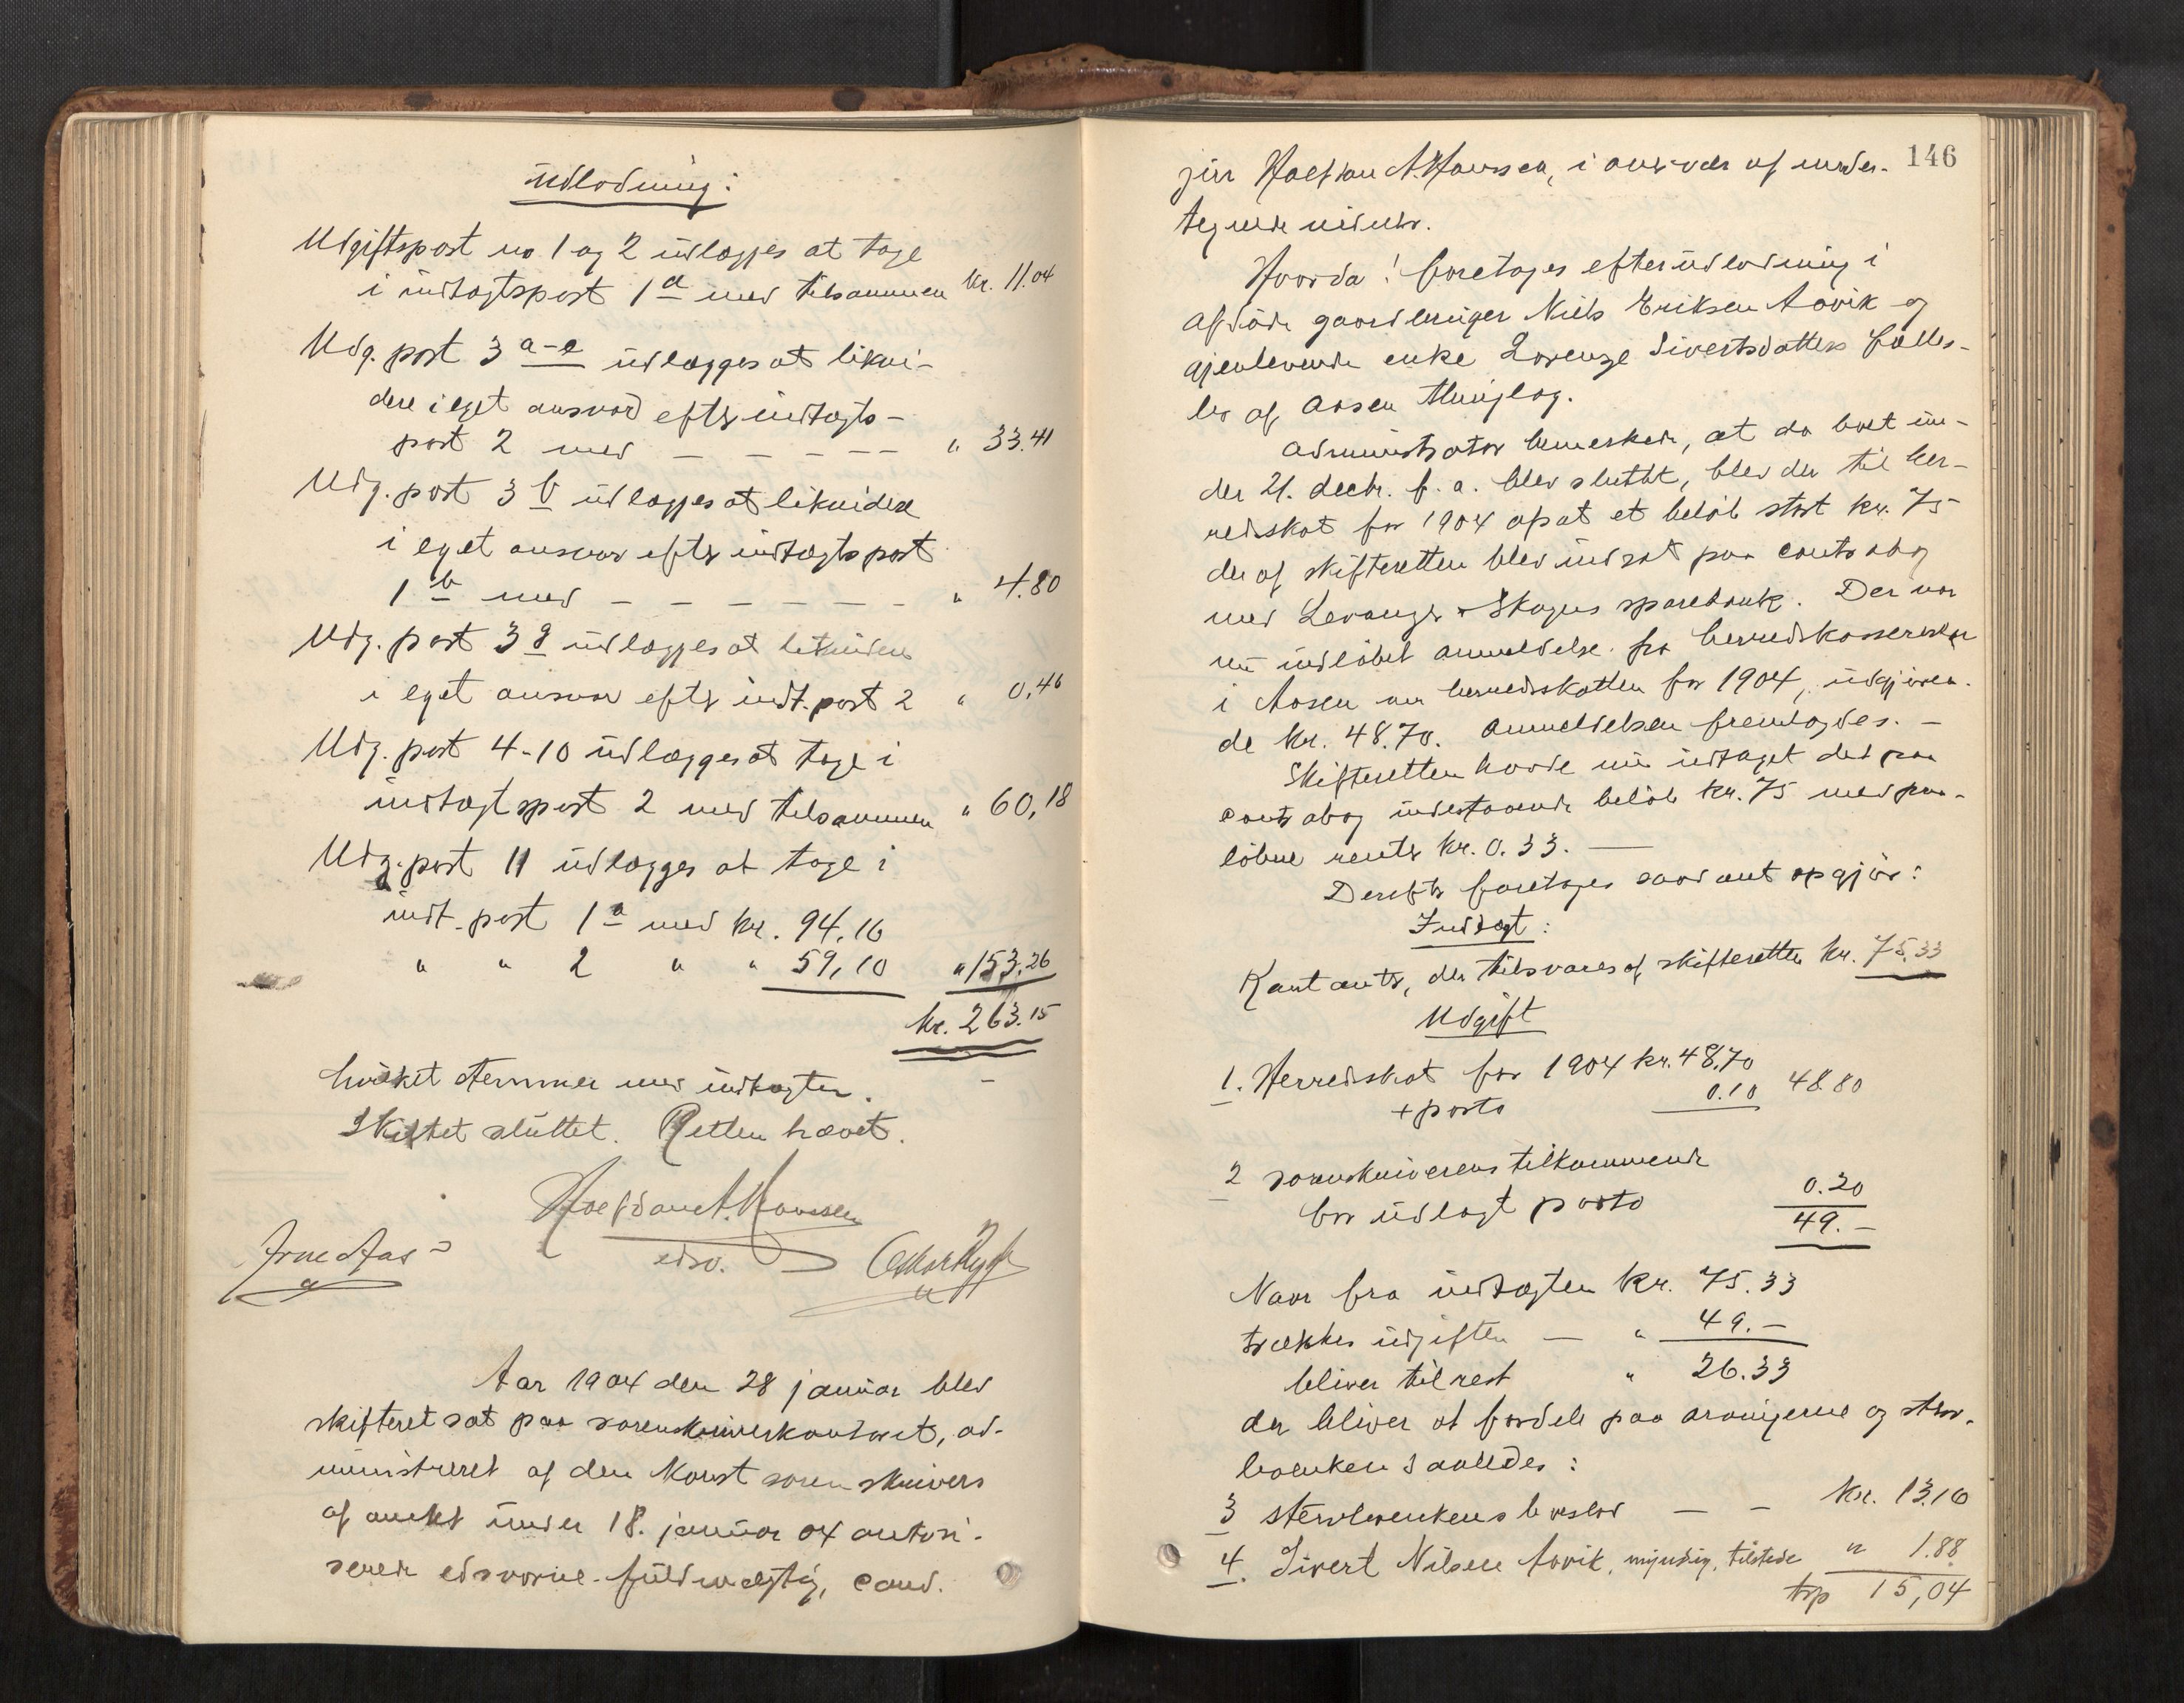 Udlodning:
Udgiftspost no 1 og 2 udlægges at tage
i indtægtspost 1 a med tilsammen kr. 11.04
Udg. post 3 a-e udlægges at likvi-
dere i eget ansvar efter indtægts-
post 2 med — — — — — " 33.41
Udg. post 3 b udlægges at likvidere
i eget ansvar efter indtægtspost
1 b med — — — — — — " 4.80
Udg. post 3 g udlægges at likvidere
i eget ansvar efter indt. post 2 " 0,46
Udg. post 4-10 udlægges at tage i
indtægtspost 2 med tilsammen " 60,18
Udg. post 11 udlægges at tage i
indt. post 1 a med kr. 94,16
" " 2 " " 59,10 " 153,26
kr. 263.15
hvilket stemmer med indtægten. —
Skiftet sluttet. Retten hævet.
Halfdan A. Hanssen
edsv.
Arne Aas
Aar 1904 den 28 januar blev
skifteret sat paa sorenskriverkontoret, ad-
ministreret af den konst sorenskrivers
af amtet under 18. januar 04 autori-
serede edsvorne fuldmægtig, cand.
146
jur Halfdan A. Hanssen, i overvær af under-
tegnede vidner.
Hvorda: foretages efterudlodning i
afdøde gaardbruger Niels Eriksen Aavik og
gjenlevende enke Lorenze Sivertsdatters fælles-
bo af Aasen thinglag.
Administrator bemerkede, at da boet un-
der 21. decbr. f. a. blev sluttet, blev der til her-
redsskat for 1904 afsat et beløb stort kr. 75
der af skifteretten blev indsat paa contrabog
med Levanger & Skogns sparebank. Der var
nu indløbet anmeldelse fra herredskassereren
i Aasen om herredsskatten for 1904, udgjøren-
de kr. 48.70. Anmeldelsen fremlagdes. —
Skifteretten havde nu udtaget det paa
contrabog indestaaende beløb kr. 75 med paa-
løbne renter kr. 0.33. —
Derefter foretages saadant opgjør:
Indtægt:
Kontanter, der tilsvares af skifteretten kr. 75.33
Udgift
1. Herredsskat for 1904 kr. 48.70
+ porto 0.10 48.80
2 sorenskriverens tilkommende
for udlagt porto 0.20
49. —
Naar fra indtægten kr. 75.33
trækkes udgiften — " 49. —
bliver til rest " 26.33
der bliver at fordele paa arvingerne og sterv-
boenken saaledes:
3 stervboenkens boeslod — — kr. 13.16
4. Sivert Nilsen Aavik, myndig, tilstede " 1.88
trsp 15,04